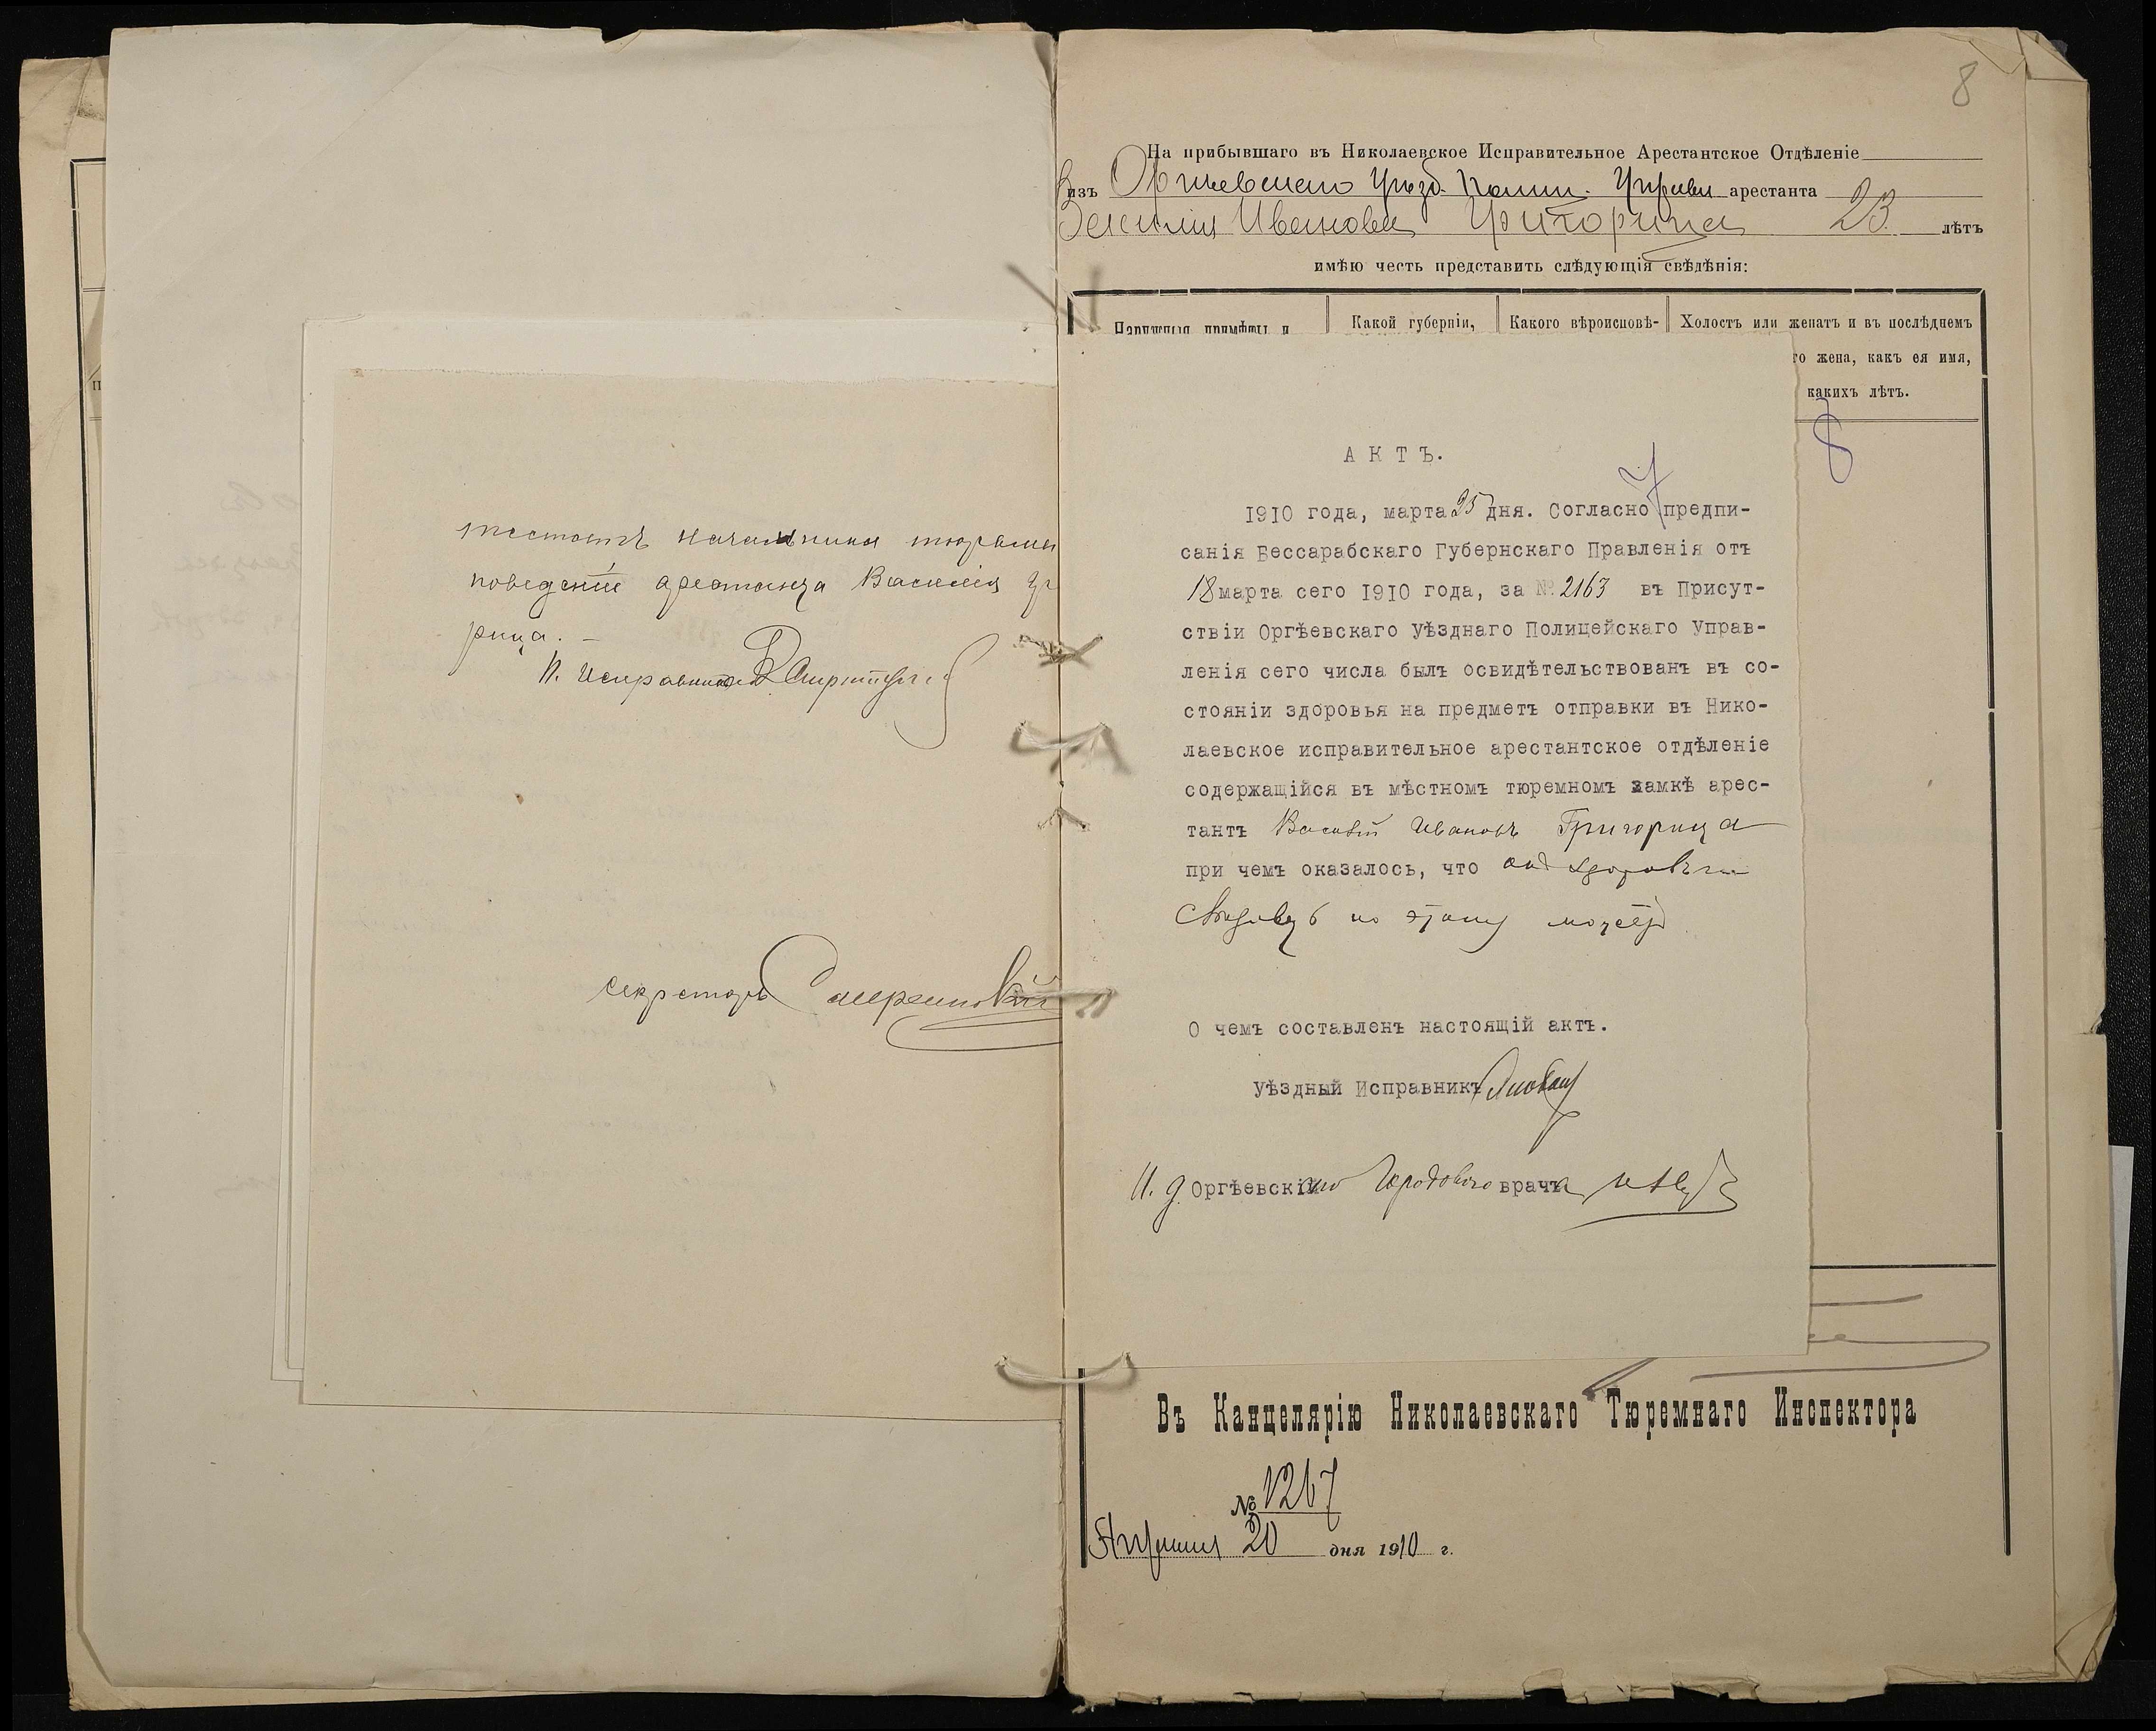 тестатъ начальника тюрьмы
поведеніе арестанта Василія Гр
рица. —
И. Исправника
Секретарь
8
На прибывшаго въ Николаевское Исправительное Арестантское Отдѣленіе
изъ Оргѣевскаго Уѣзд. Полиц. Управл арестанта
Василія Иванова Григорица 23 лѣтъ
имѣю честь представить слѣдующія свѣдѣнія:
Наружныя примѣты и Какой губерніи, Какого вѣроисповѣ- Холостъ или женатъ и въ послѣднемъ
го жена, какъ ея имя,
какихъ лѣтъ.
8
АКТЪ.
7
1910 года, марта 25 дня. Согласно предпи-
санія Бессарабскаго Губернскаго Правленія отъ
18 марта сего 1910 года, за № 2163 въ Присут-
ствіи Оргѣевскаго Уѣзднаго Полицейскаго Управ-
ленія сего числа былъ освидѣтельствованъ въ со-
стояніи здоровья на предметъ отправки въ Нико-
лаевское исправительное арестантское отдѣленіе
содержащійся въ мѣстномъ тюремномъ замкѣ арес-
тантъ Василій Ивановъ Григорица
при чемъ оказалось, что онъ здоровъ и
слѣдовать по этапу можетъ
О чемъ составленъ настоящій актъ.
Уѣздный Исправникъ
И. д. Оргѣевскаго Городового врача
Въ Канцелярію Николаевскаго Тюремнаго Инспектора
№ 1267
Апрѣля 20 дня 1910 г.